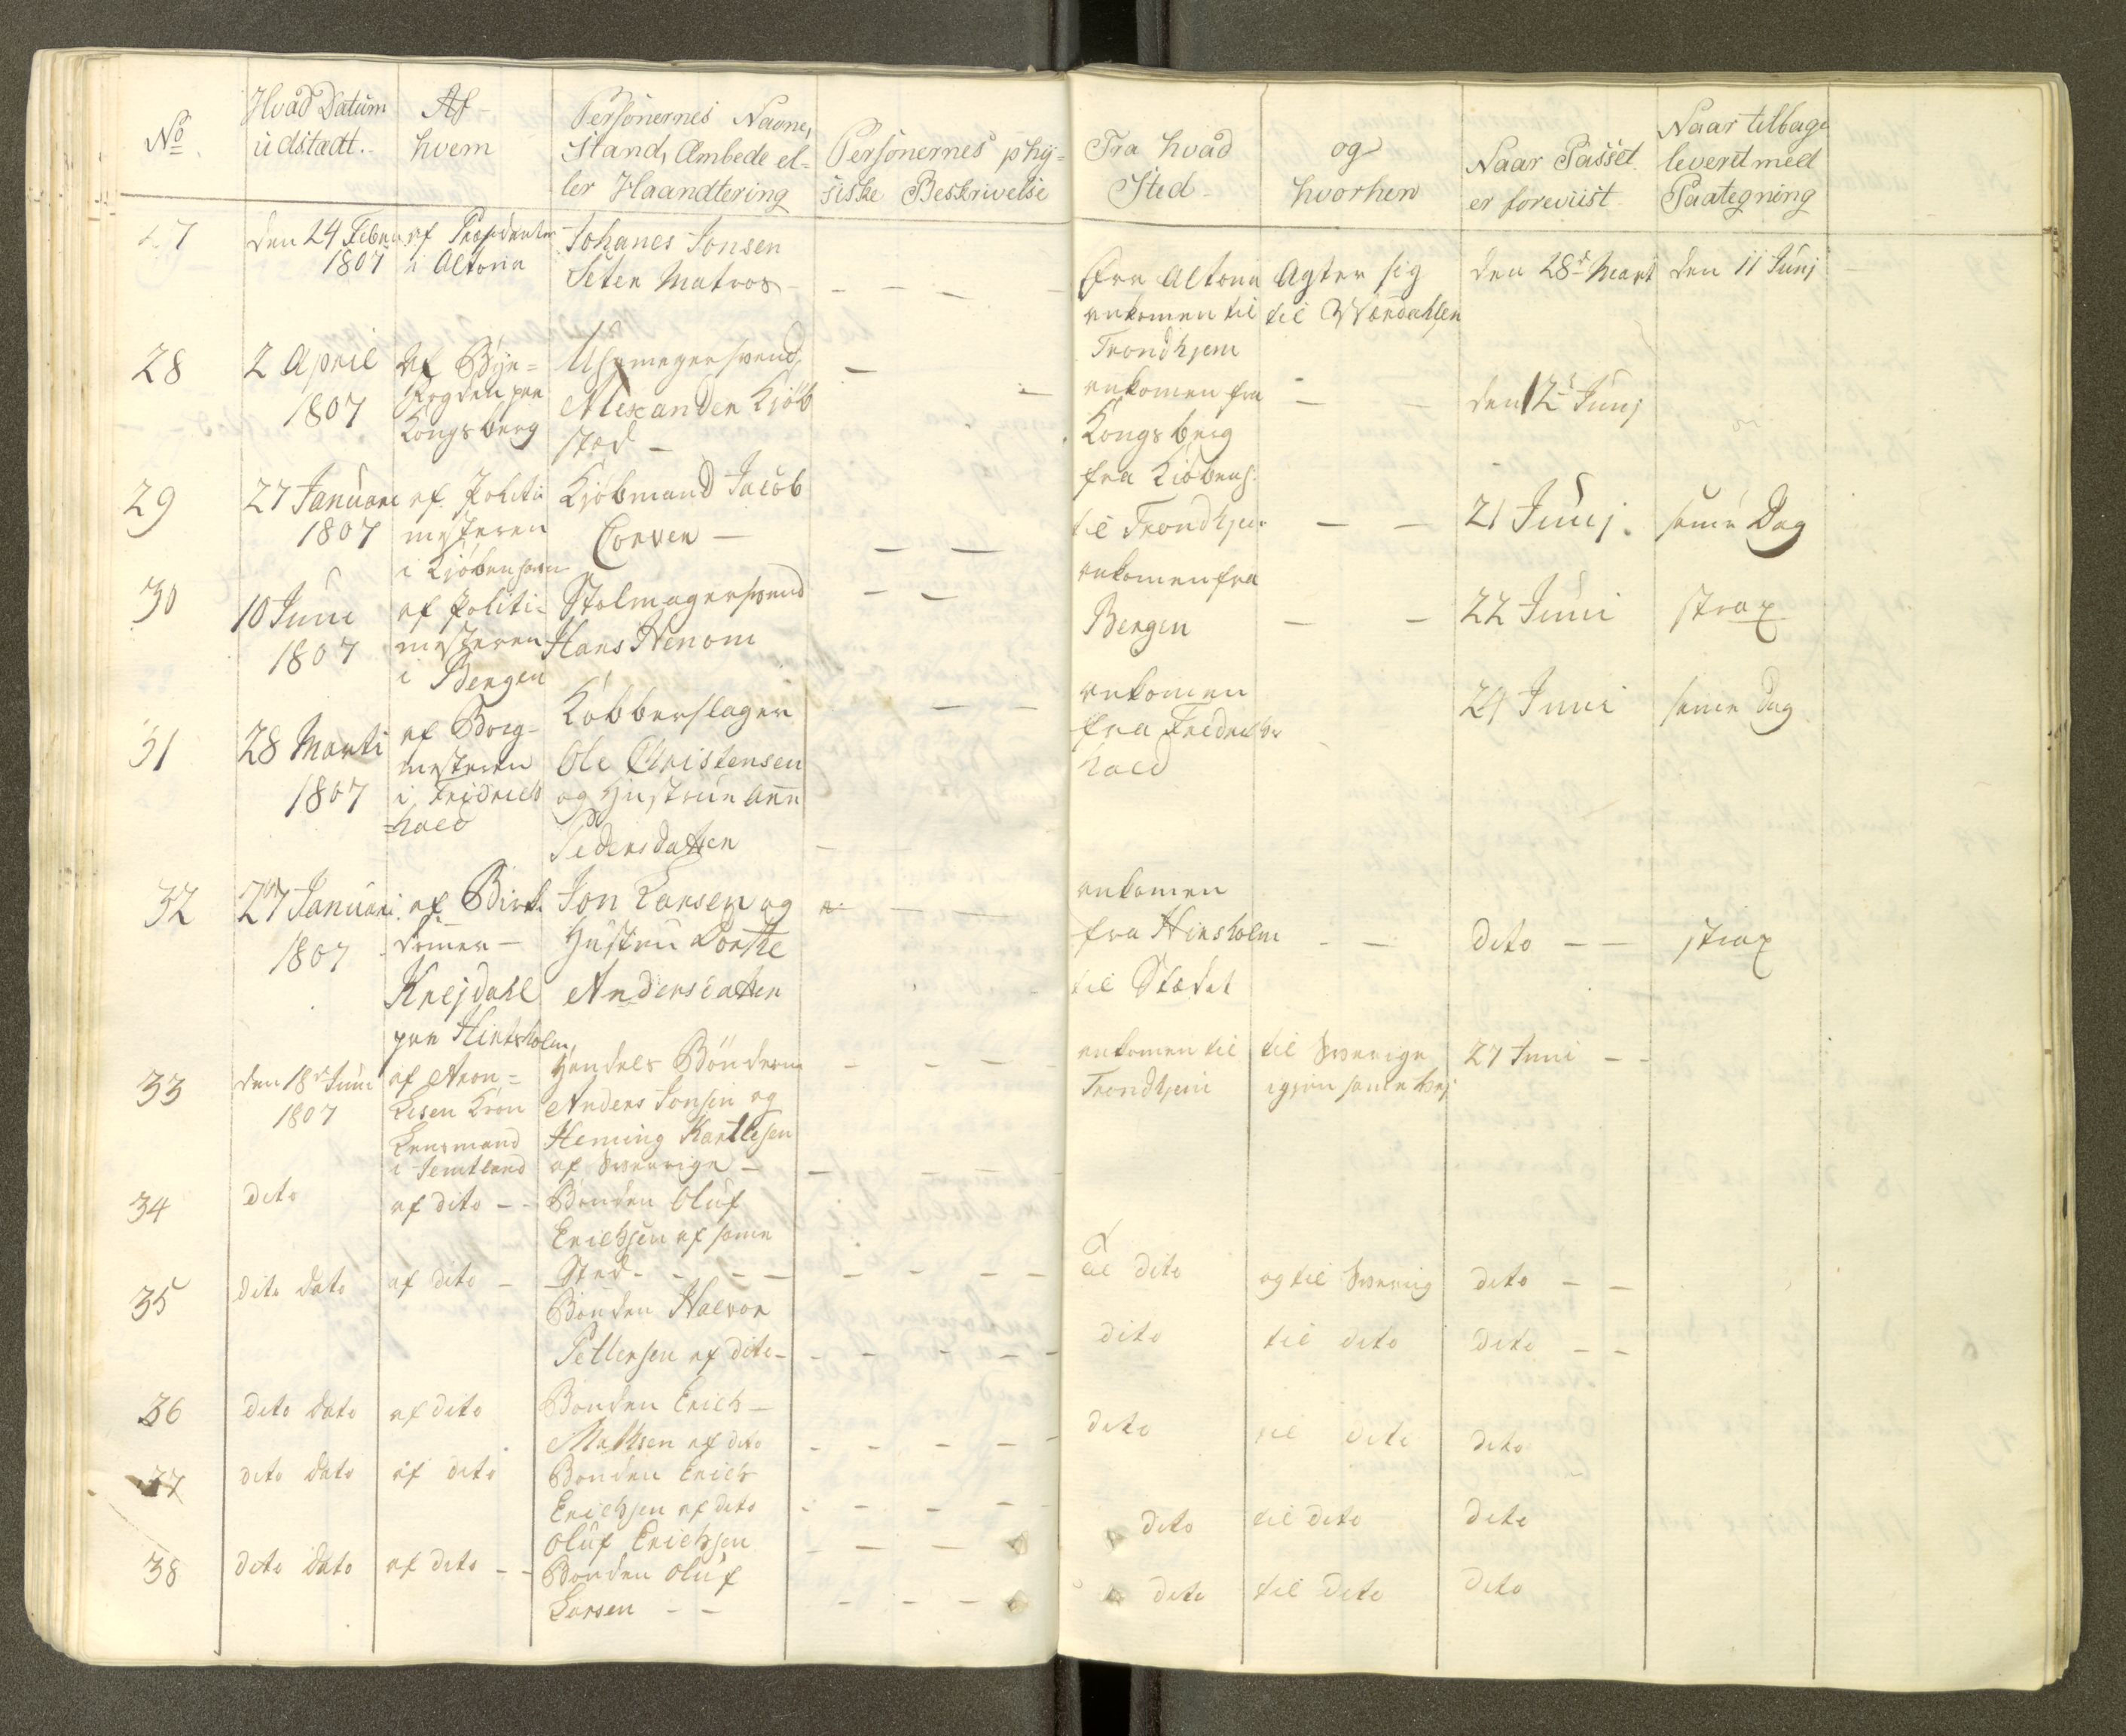 No
Hvad Datum
udstædt.
Af
hvem
Personernes Navne,
Stand, Ambede el-
ler Haandtering
Personernes phÿ-
siske Beskrivelse
Fra hvad
Sted
og
hvorhen
Naar Passet
er foreviist
Naar tilbage
leverit med
Paategning
27
den 24 Febru
1807
af Præsidenten
i Altona
Johanes Jonsen
Seten Matros
fra Altona
ankomen til
Trondhjem
Agter sig
til Værdahlen
den 28d Marti
den 11 Junj
28
2 April
1807
af Bÿe=
fogden paa
Kongsberg
Uhrmagersvend
Alexander Kjöb
sted -
ankomen fra
Kongsberg
den 12 Junj
29
27 Januari
1807
af Politi
mesteren
i Kjöbenhavn
Kjöbmand Jacob
Corven -
fra Kiöbenh.
til Trondhjem
21 Junj.
same Dag
30
10 Juni
1807
af Politi-
mesteren
i Bergen
Stolmagersvend
Hans Henom
ankomen fra
Bergen
22 Juni
strax
31
28 Marti
1807
af Borg-
mesteren
i Fridrichs
=hald
Kobberslager
Ole Christensen
og Hustrue Ann
Pedersdatter
ankomen
fra Fredrichs
hald
24 Juni
same Dag
32
27 Januari
1807
af Birk
domer -
Krejdahl
paa Hintsholm,
Jon Larsen og
Hustru Dorthe
Andersdatter
ankomen
fra Hinsholm
til Stædet
dito - -
strax
33
den 18d Juni
1807
af Aron=
Lisen Kron
Lensmand
i Jemtland
Handels Bönderne
Anders Jonsen og
Heming Kartlesen
af Sverrige -
ankomen til
Trondhjem
til Sverige
igjen same Vej
27 Juni - -
34
dito
af dito - -
Bonden Oluf
Erichsen af same
Sted -
til dito
og til Sverrig
dito - -
35
dito dato
af dito -
Bonden Halvor
Pettersen af dito -
dito
til dito
dito - -
36
dito dato
af dito
Bonden Erich -
Mathsen af dito
dito
til dito
dito
37
dito dato
af dito
Bonden Erich
Erichsen af dito
Oluf Erichsen
dito
til dito
dito
38
dito dato
af dito - -
Bonden Oluf
Larsen - -
dito
til dito
dito